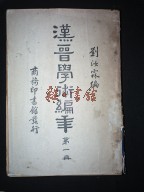 劉汝霖編
漢晉學術編年
第一冊
商務印書館發行